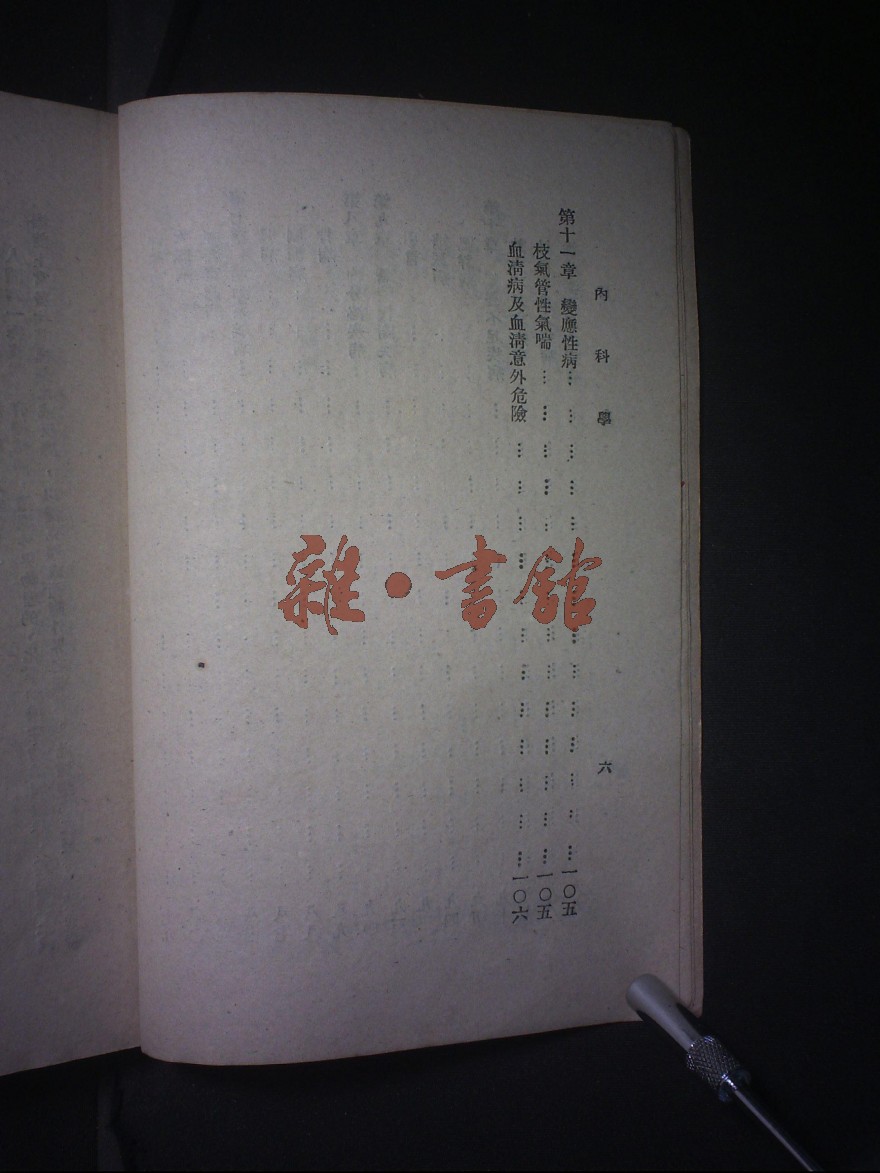 內科學 六
第十一章 變應性病……………………………………一〇五
枝氣管性氣喘……………………………………一〇五
血淸病及血淸意外危險……………………………………一〇六
雜·書館